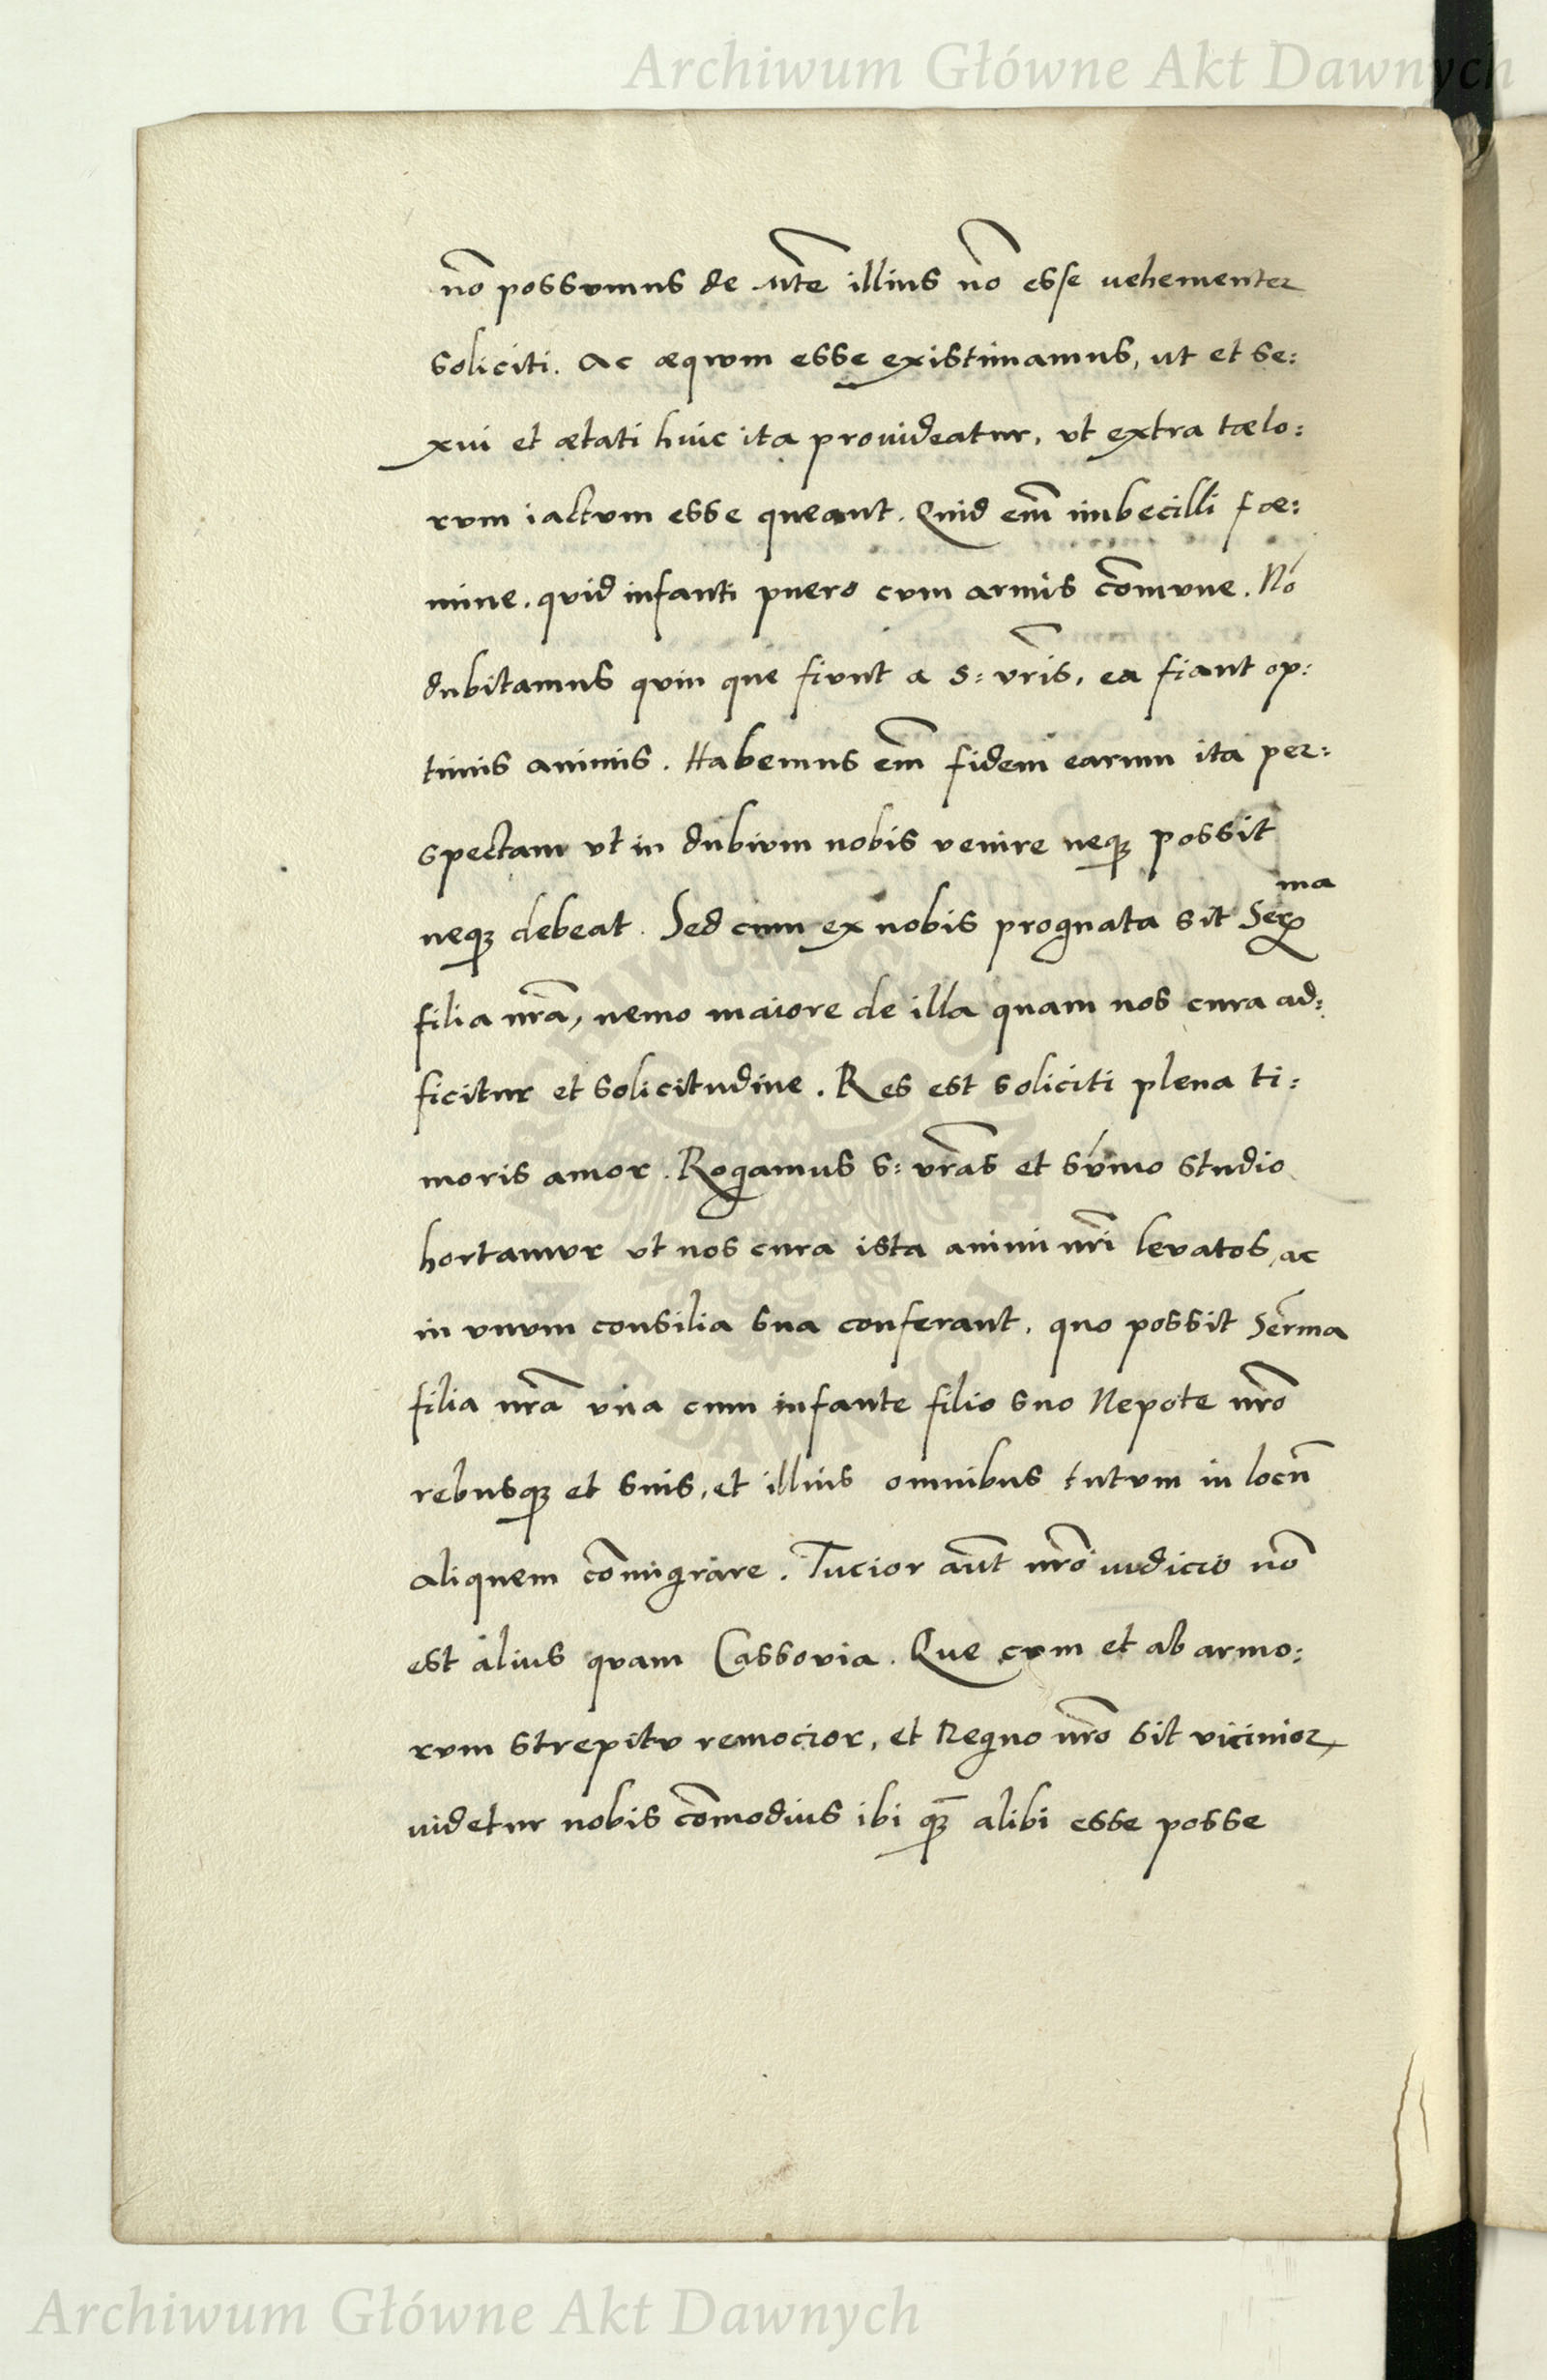 Archiwum Główne Akt Dawnych
nō possumus de vīte illius nō esse uehementer
soliciti. Ac æquum esse existimamus, ut et se:
xui et ætati huic ita prouideatur, vt extra tælo:
rum iactum esse queant. Quid em̄ imbecilli fœ:
mine. quid infanti puero cum armis cōmune. Nō
dubitamus quin que fiunt a S: vrīs, ea fiant op:
timis animis. Habemus em̄ fidem earum ita per:
spectam vt in dubium nobis venire neqꝫ possit
neqꝫ debeat. Sed cum ex nobis prognata sit Serᵐᵃ
filia nrā, nemo maiore de illa quam nos cura ad:
ficitur et solicitudine. Res est soliciti plena ti:
moris amor. Rogamus S: vrās et sūmo studio
hortamur vt nos cura ista animi nrī leuatos, ac
in vnum consilia sua conferant, quo possit Serma
filia nrā vna cum infante filio suo Nepote nrō
rebusqꝫ et suis, et illius omnibus tutum in locū
aliquem cōmigrare. Tucior aūt nrō iudicio nō
est alius quam Cassouia. Que cum et ab armo:
rum strepitu remocior, et Regno nrō sit vicinior,
uidetur nobis cōmodius ibi qꝫ̄ alibi esse posse
ARCHIWUM GŁÓWNE
AKT DAWNYCH
Archiwum Główne Akt Dawnych